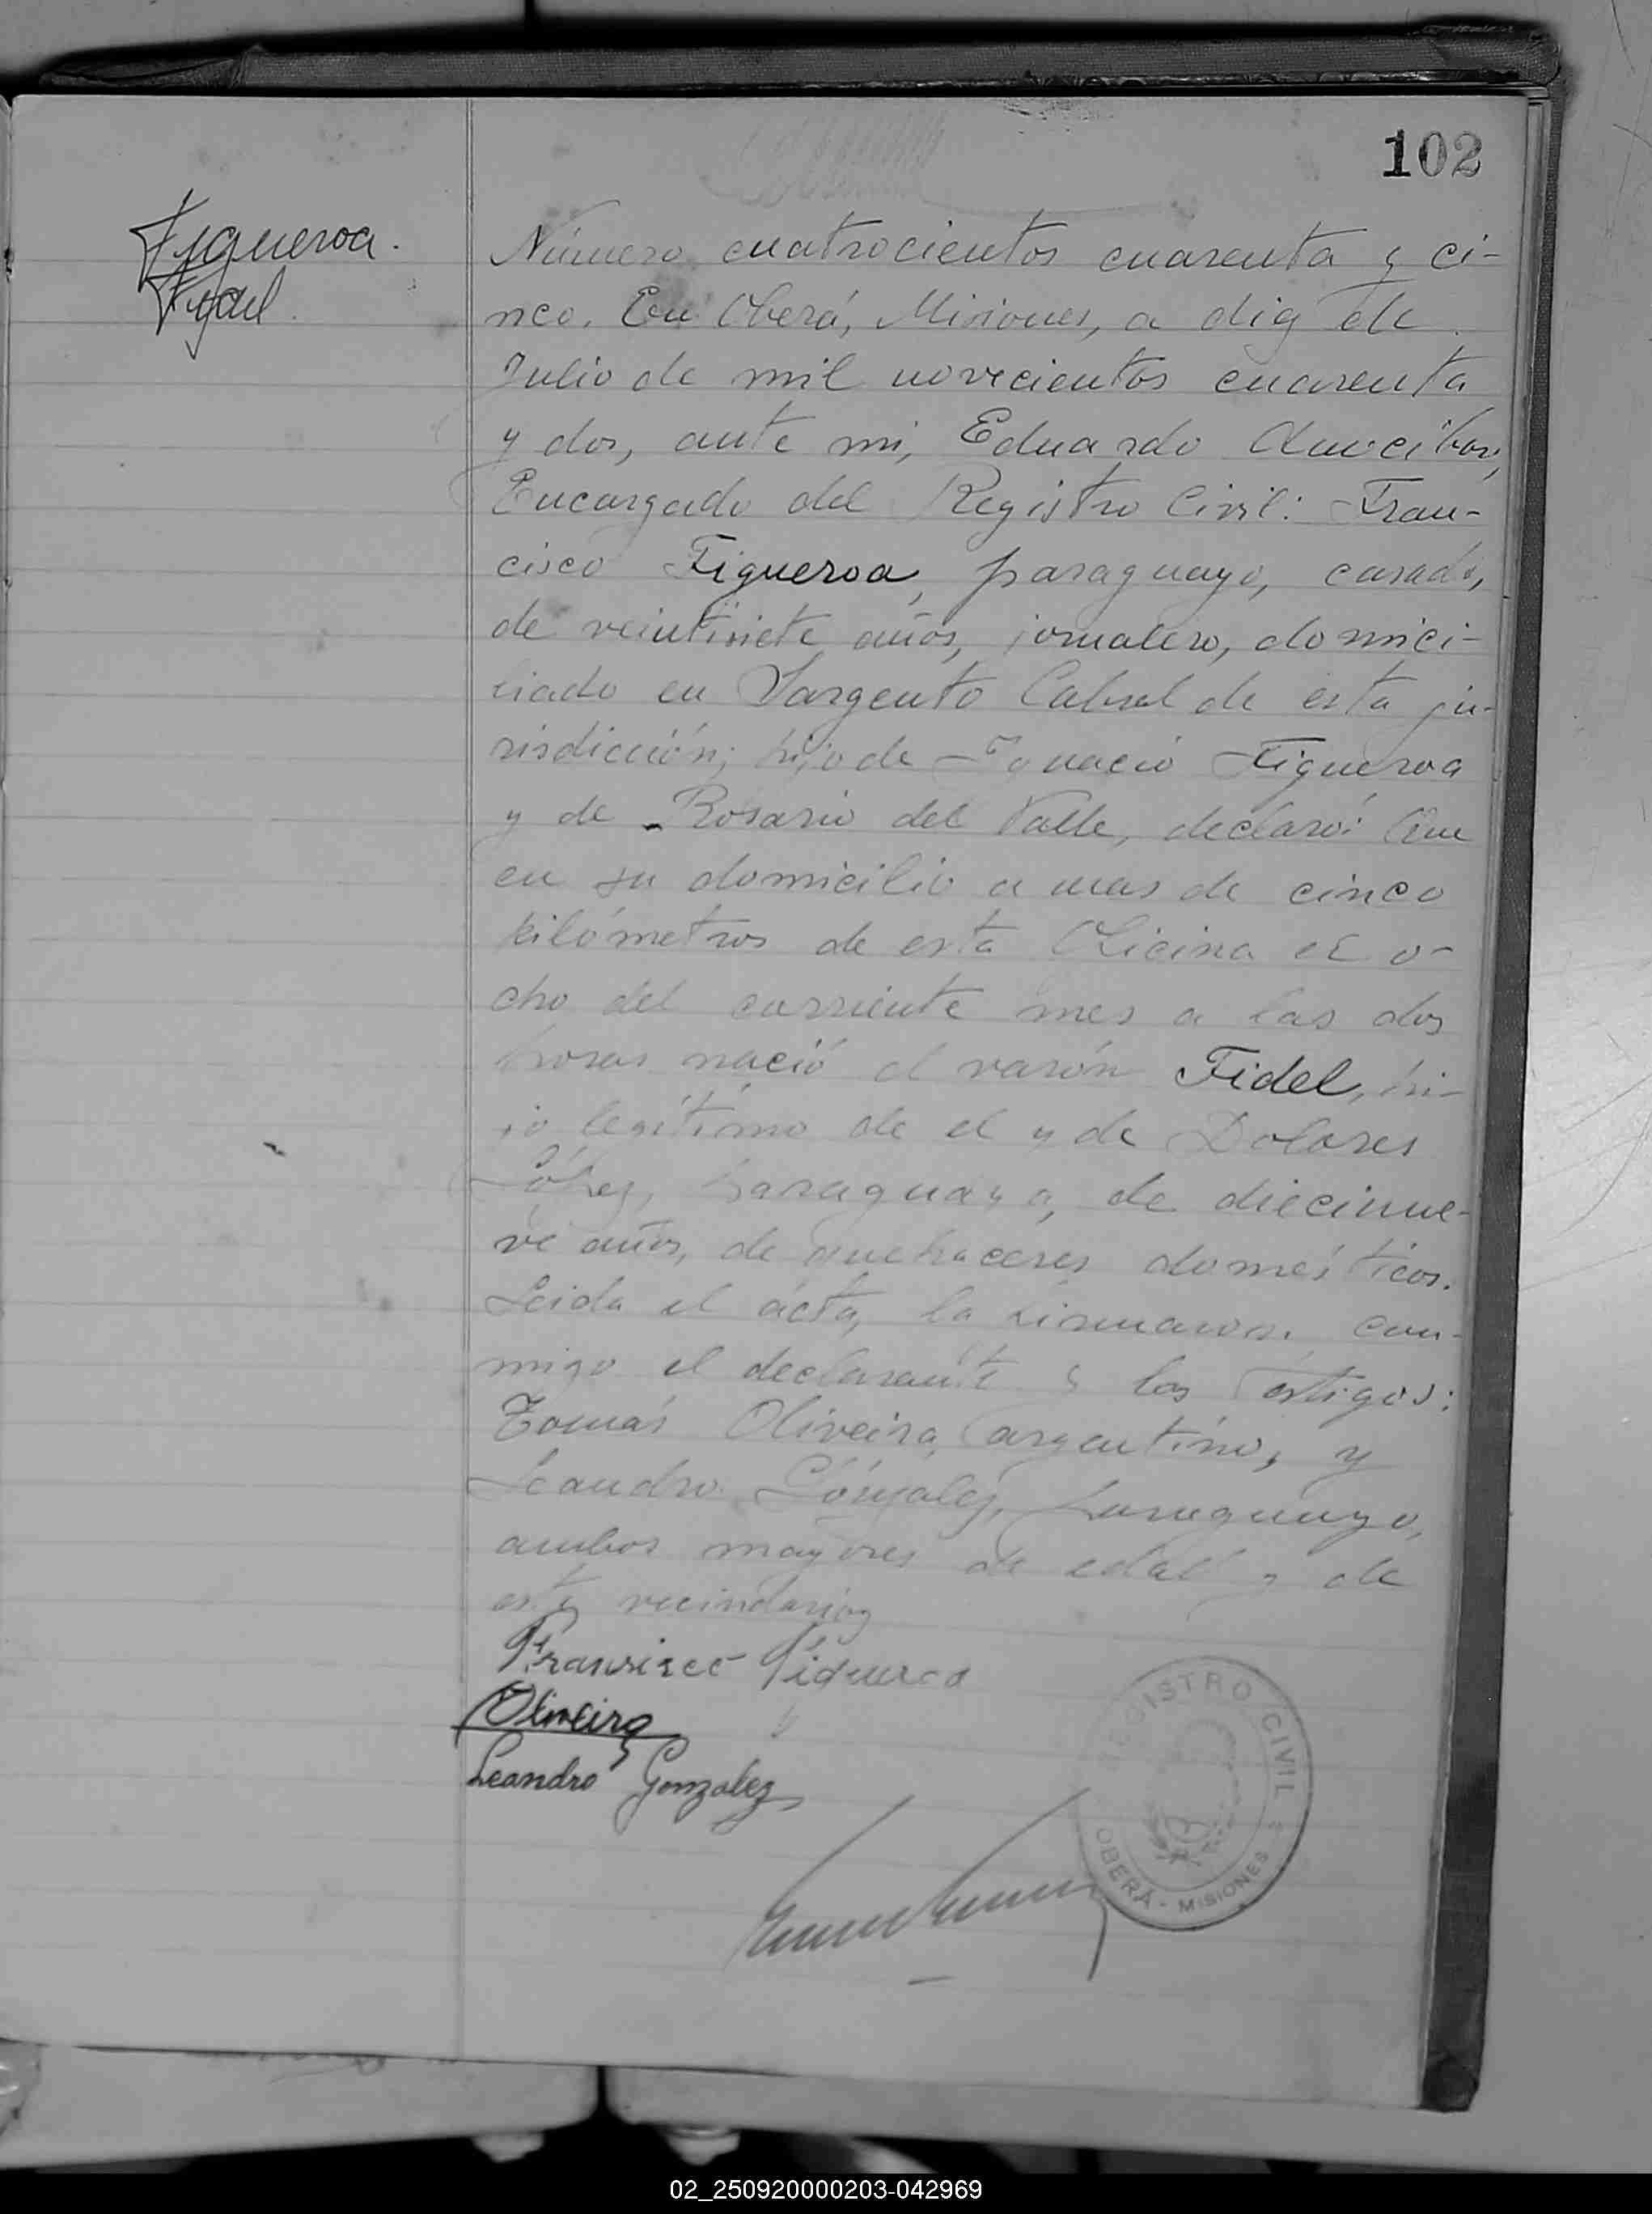 102
Figueroa.
Fidel.
Número cuatrocientos cuarenta y ci-
nco. En Oberá, Misiones, a diez de
Julio de mil novecientos cuarenta
y dos, ante mi, Eduardo
Encargado del Registro Civil: Fran-
cisco Figueroa, paraguayo, casado,
de veintisiete años, jornalero, domici-
liado en Sargento Cabral de esta ju-
risdicción; hijo de Ignacio Figueroa
y de Rosario del Valle, declaró: Que
en su domicilio a mas de cinco
kilómetros de esta Oficina el o-
cho del corriente mes a las dos
horas nació el varón Fidel, hi-
jo legítimo de el y de Dolores
López, paraguaya, de diecinue-
ve años, de quehaceres domésticos.
Leida el ácta, la firmaron con-
migo el declarante y los testigos:
Tomás Oliveira, argentino, y
Leandro Gónzalez, paraguayo,
ambos mayores de edad y de
este vecindario
Francisco Figueroa
Oliveira
Leandro Gonzalez
REGISTRO CIVIL
OBERÁ - MISIONES
02_250920000203-042969